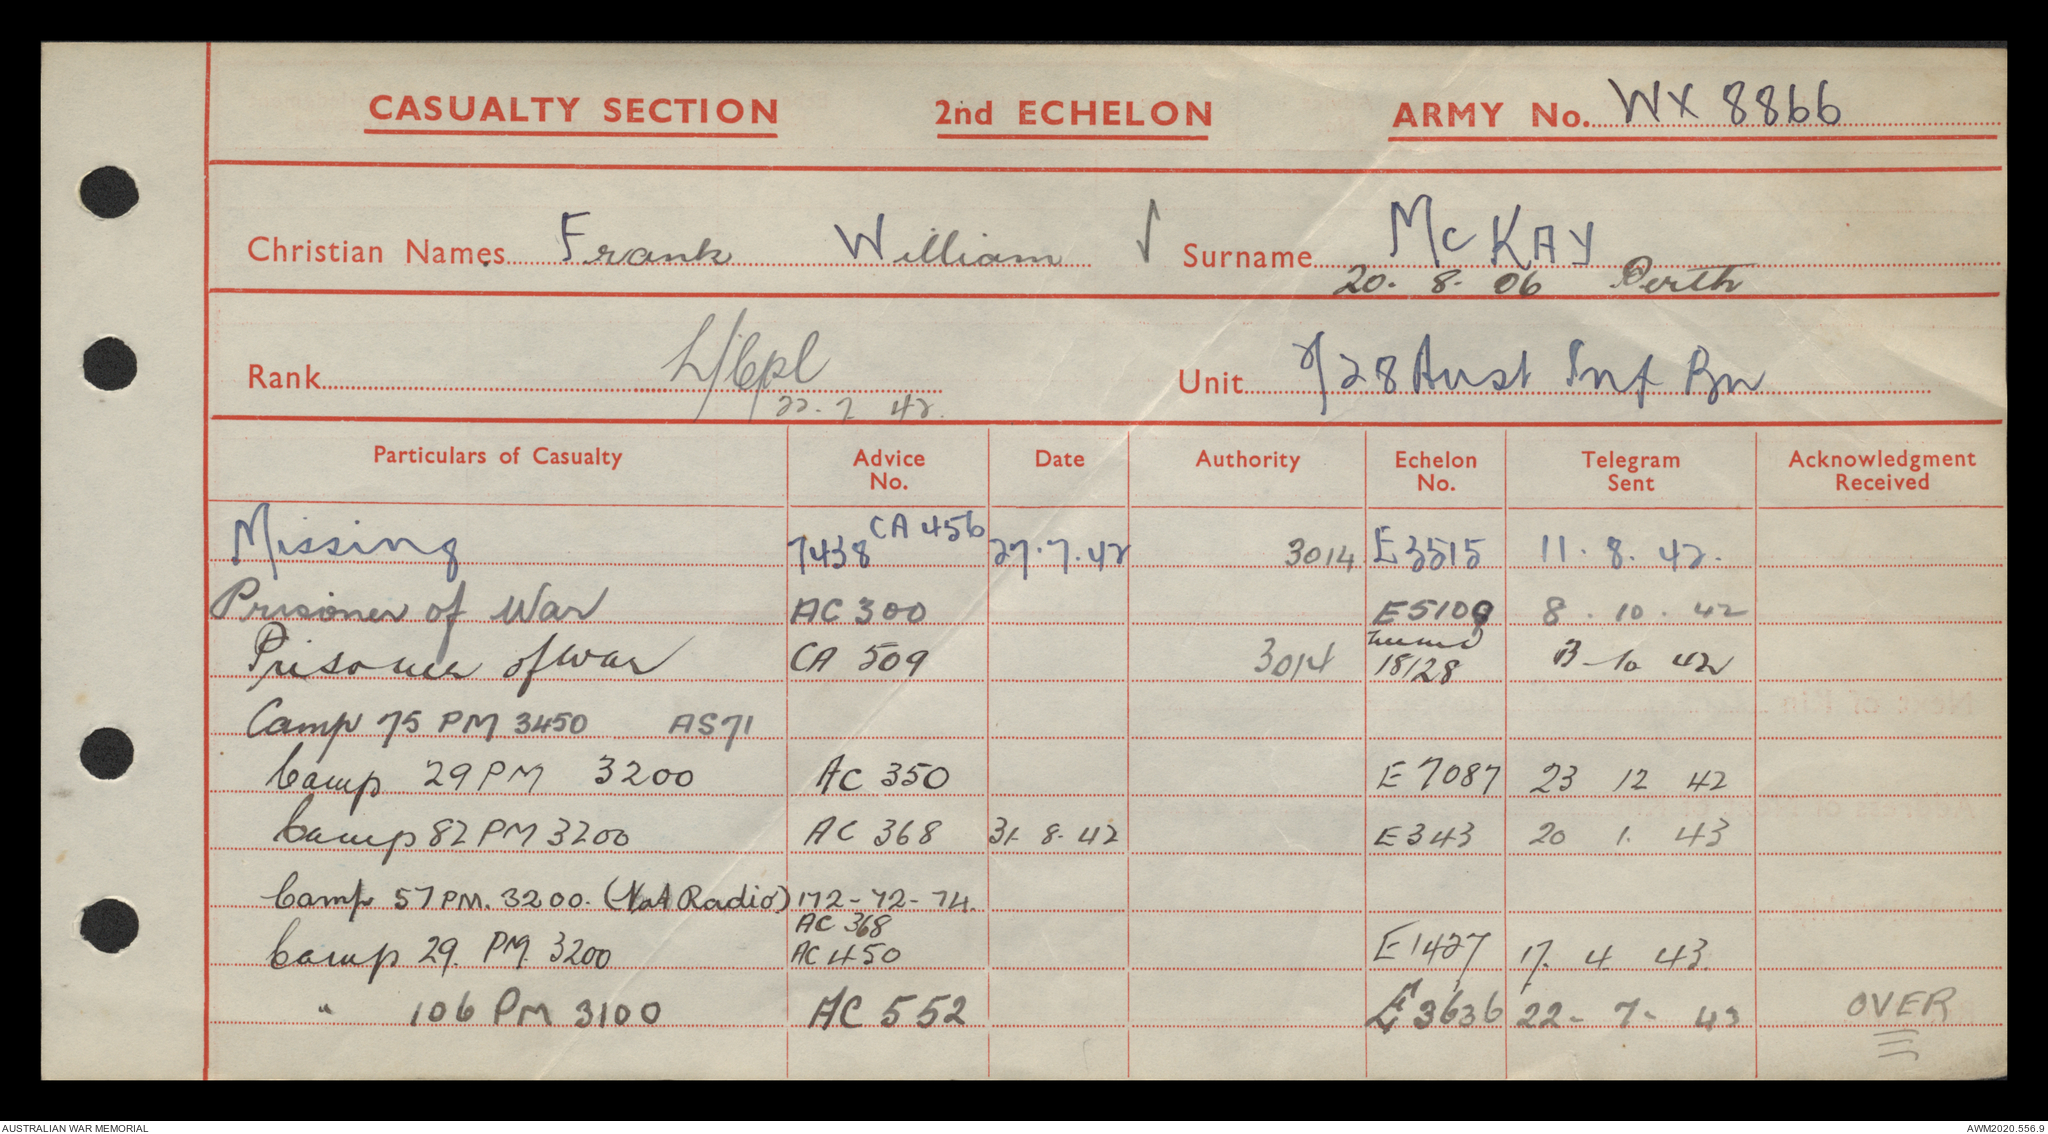 CASUALTY SECTION 2nd ECHELON ARMY No. WX 8866
Christian Names Frank William √ Surname McKAY
20. 8. 06 Perth
Rank L/Cpl Unit 2/28 Aust Inf Bn
22. 7 42.
Particulars of Casualty Advice No. Date Authority Echelon No. Telegram Sent Acknowledgment Received
Missing 7438 CA 456 27.7.42 3014 E3515 11. 8. 42.
Prisoner of War AC 300 E5109 8. 10. 42
Prisoner of war CA 509 3014 18128 13 10 42
Camp 75 PM 3450 AS71
Camp 29 PM 3200 AC 350 E 7087 23 12 42
Camp 82 PM 3200 AC 368 31. 8. 42 E343 20 1. 43
Camp 57 PM. 3200. (Vat Radio) 172-72-74.
AC 368
Camp 29. PM. 3200 AC 450 E1427 17. 4 43.
" 106 PM 3100 AC 552 E3636 22- 7- 43 OVER
AUSTRALIAN WAR MEMORIAL AWM2020.556.9